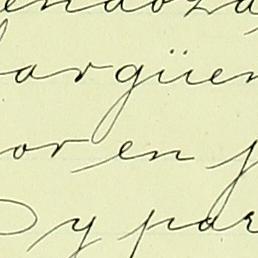 endoza
argüen
or en p
y par